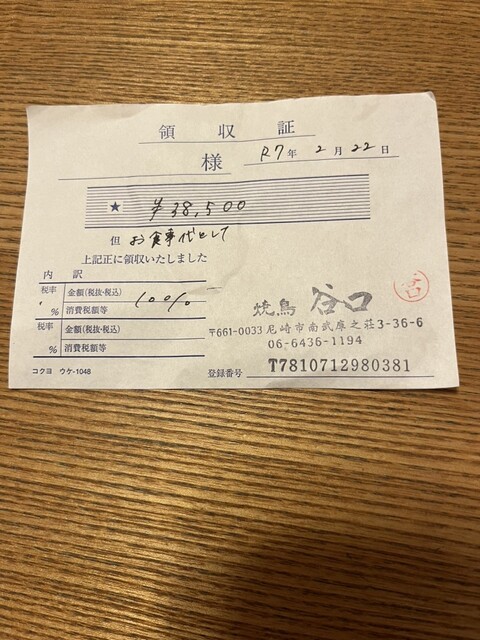 領収証
様 R7年 2月 22日
★ ¥38,500
但 お食事代として
上記正に領収いたしました
内 訳
税率 金額(税抜・税込) 100%
% 消費税額等
税率 金額(税抜・税込)
% 消費税額等
焼鳥 谷口
〒661-0033 尼崎市南武庫之荘3-36-6
06-6436-1194
コクヨ ウケ-1048
登録番号 T7810712980381